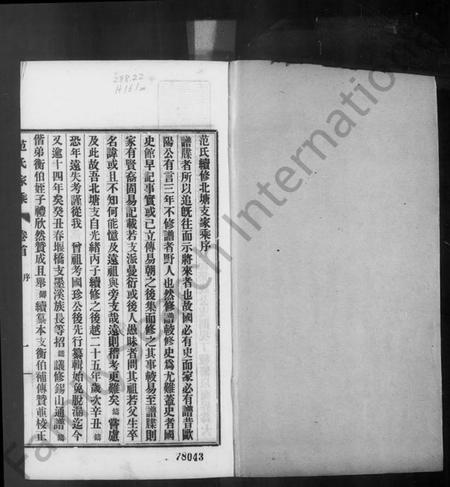 范氏續修北塘支家乘序
譜牒者所以追既往而示將來者也故國必有史而家必有譜昔歐
陽公有言三年不修譜者野人也然修譜較修史爲尤難蓋史者國
史館早記事實或已立傳易朝之後集而修之其事較易至譜牒則
家有賢裔固易記載若支派蔓衍或後人愚昧者問其祖若父生卒
名諱或且不知何能憶及遠祖與旁支哉遠則稽考更難矣 嘗慮
及此故吾北塘支自光緒丙子續修之後越二十五年歲次辛丑
恐年遠失考謹從我 曾祖考國珍公後先行纂輯始免脫漏迄今
又逾十四年矣癸丑春堰橋支墨溪族長等招 議修錫山通譜
偕弟衡伯姪子禮欣然贊成且舉 續纂本支衡伯補傳贊並校正
范氏家乘 卷首 序 一
288.22
H161
78043
FamilySearch International